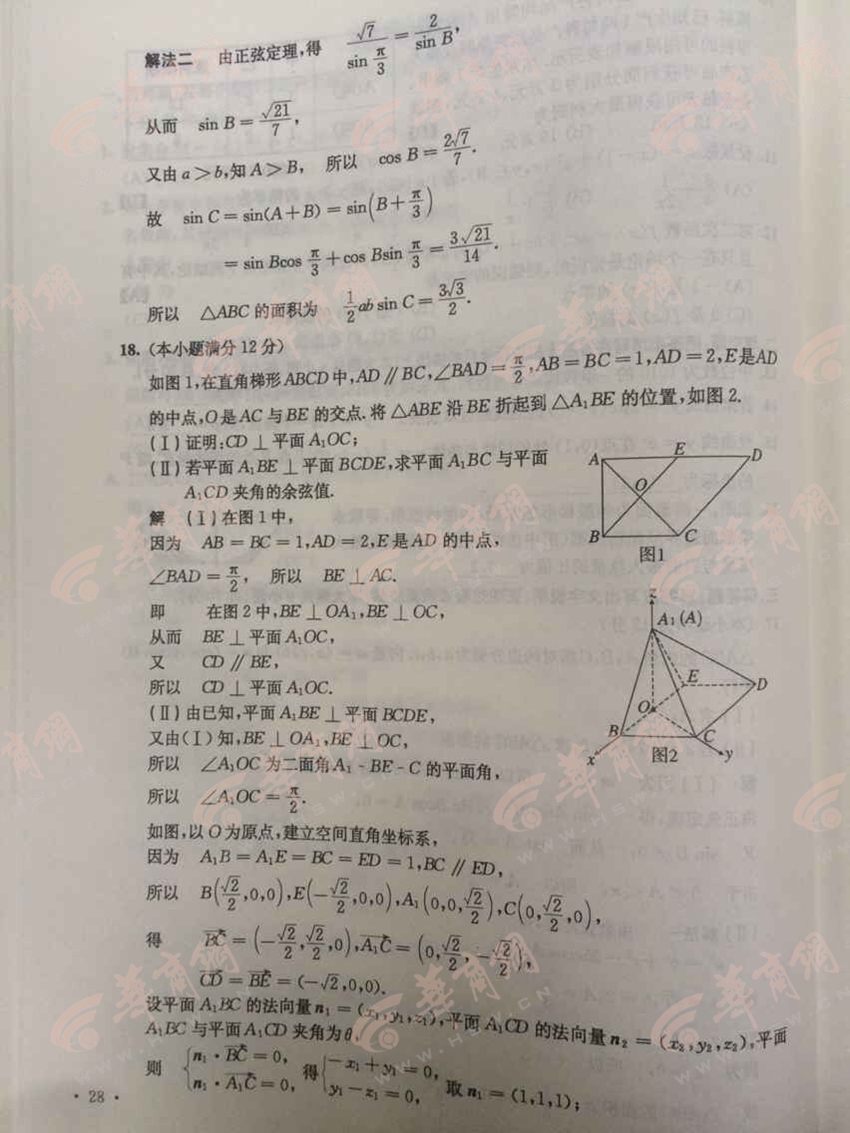 解法二 由正弦定理,得 √7/sin π/3 = 2/sin B,
从而 sin B = √21/7,
又由 a > b,知 A > B, 所以 cos B = 2√7/7.
故 sin C = sin(A + B) = sin(B + π/3)
= sin Bcos π/3 + cos Bsin π/3 = 3√21/14.
所以 △ABC 的面积为 1/2 ab sin C = 3√3/2.
18. (本小题满分 12 分)
如图 1,在直角梯形 ABCD 中,AD ∥ BC,∠BAD = π/2,AB = BC = 1,AD = 2,E是AD
的中点,O是 AC 与 BE 的交点.将 △ABE 沿 BE 折起到 △A₁BE 的位置,如图 2.
(Ⅰ)证明:CD ⊥ 平面 A₁OC;
(Ⅱ)若平面 A₁BE ⊥ 平面 BCDE,求平面 A₁BC 与平面
A₁CD 夹角的余弦值.
解 (Ⅰ)在图 1 中,
因为 AB = BC = 1,AD = 2,E 是 AD 的中点,
∠BAD = π/2, 所以 BE ⊥ AC.
即 在图 2 中,BE ⊥ OA₁,BE ⊥ OC,
从而 BE ⊥ 平面 A₁OC,
又 CD ∥ BE,
所以 CD ⊥ 平面 A₁OC.
(Ⅱ)由已知,平面 A₁BE ⊥ 平面 BCDE,
又由(Ⅰ)知,BE ⊥ OA₁,BE ⊥ OC,
所以 ∠A₁OC 为二面角 A₁ - BE - C 的平面角,
所以 ∠A₁OC = π/2.
如图,以 O 为原点,建立空间直角坐标系,
因为 A₁B = A₁E = BC = ED = 1,BC ∥ ED,
所以 B(√2/2,0,0),E(-√2/2,0,0),A₁(0,0,√2/2),C(0,√2/2,0),
得 BC→ = (-√2/2,√2/2,0),A₁C→ = (0,√2/2,-√2/2),
CD→ = BE→ = (-√2,0,0).
设平面 A₁BC 的法向量 n₁ = (x₁,y₁,z₁),平面 A₁CD 的法向量 n₂ = (x₂,y₂,z₂),平面
A₁BC 与平面 A₁CD 夹角为 θ,
则 {n₁ · BC→ = 0, n₁ · A₁C→ = 0, 得{-x₁ + y₁ = 0, y₁ - z₁ = 0, 取 n₁ = (1,1,1);
· 28 ·
A
E
D
O
B
C
图1
z
A₁(A)
E
D
O
B
C
x
图2
y
华育网